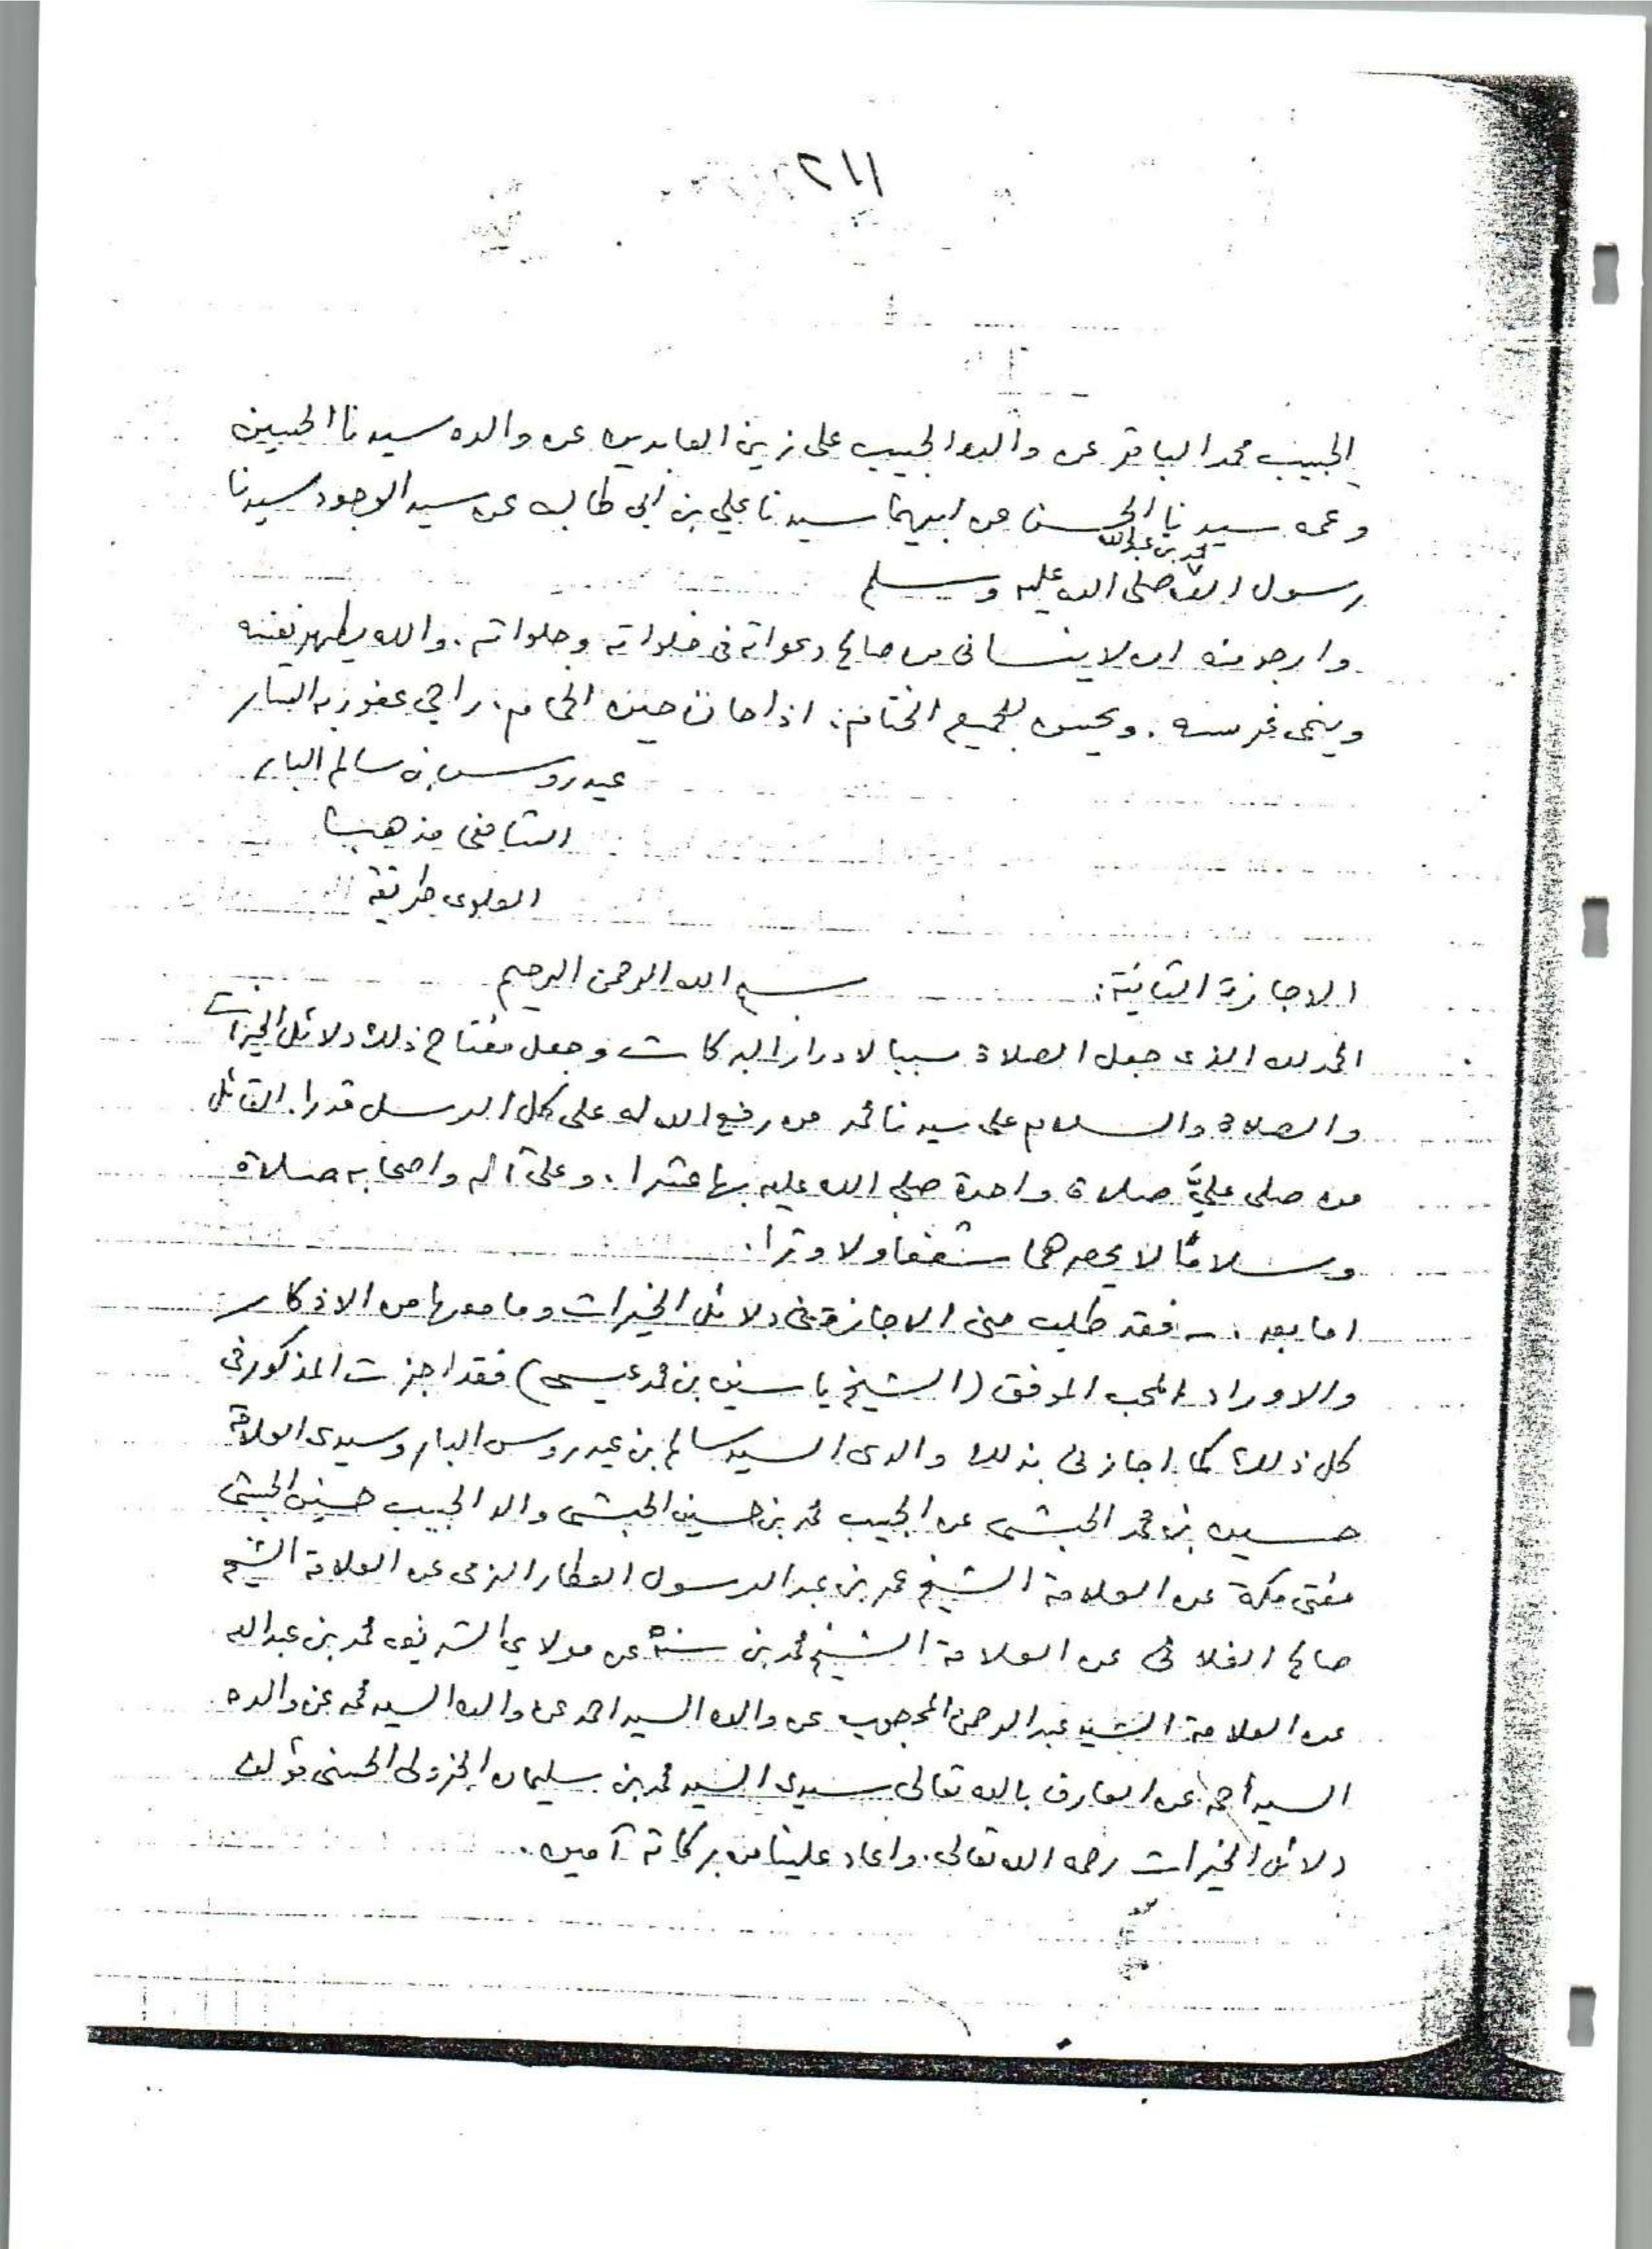 ٢١١
الحبيب محمد الباقر عن والده الحبيب على زين العابدين عن والده سيدنا الحسين
وعمه سيدنا الحسن عن ابيهما سيدنا علي بن ابي طالب عن سيد الوجود سيدنا
محمد بن عبدالله
رسول الله صلى الله عليه وسلم
وارجو منه ان لا ينسانى من صالح دعواته فى خلواته وجلواته. والله يطهر نفسه
وينمى غرسه. ويحسن للجميع الختام. اذا حان حين الحمام. راجي عفو ربه الستار
عيدروس بن سالم البار
الشافعى مذهبا
العلوى طريقة
الاجازة الثانية: بسم الله الرحمن الرحيم
الحمد لله الذى جعل الصلاة سببا لادرار البركات وجعل مفتاح ذلك دلائل الخيرات
والصلاة والسلام على سيدنا محمد من رفع الله له على كل الرسل قدرا. القائل
من صلى عليَّ صلاة واحدة صلى الله عليه بها عشرا. وعلى آله واصحابه صلاة
وسلامًا لا يحصرهما شفعا ولا وترا.
اما بعد. فقد طلب منى الاجازة فى دلائل الخيرات وما معها من الاذكار
والاوراد المحب الموفق (الشيخ ياسين بن محمد عيسى) فقد اجزت المذكور فى
كل ذلك كما اجازنى بذلك والدى السيد سالم بن عيدروس البار وسيدى العلامة
حسين بن محمد الحبشى عن الحبيب محمد بن حسين الحبشى والد الحبيب حسين الحبشى
مفتى مكة عن العلامة الشيخ عمر بن عبد الرسول العطار الزمى عن العلامة الشيخ
صالح الفلانى عن العلامة الشيخ محمد بن سنة عن مولاي الشريف محمد بن عبدالله
عن العلامة السيد عبد الرحمن المحجوب عن والده السيد احمد عن والده السيد محمد عن والده
السيد أحمد عن العارف بالله تعالى سيدى السيد محمد بن سليمان الجزولى الحسنى مؤلف
دلائل الخيرات رحمه الله تعالى. واعاد علينا من بركاته آمين.